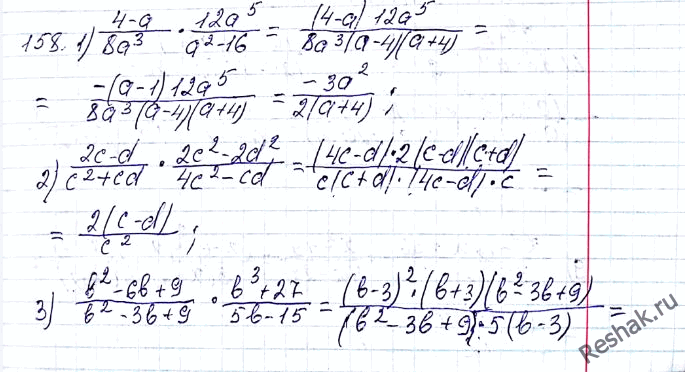 158. 1) \frac{4-a}{8a^3} \cdot \frac{12a^5}{a^2-16} = \frac{(4-a) 12a^5}{8a^3(a-4)(a+4)} =
= \frac{-(a-1) 12a^5}{8a^3(a-4)(a+4)} = \frac{-3a^2}{2(a+4)};
2) \frac{2c-d}{c^2+cd} \cdot \frac{2c^2-2d^2}{4c^2-cd} = \frac{(4c-d) \cdot 2(c-d)(c+d)}{c(c+d) \cdot (4c-d) \cdot c} =
= \frac{2(c-d)}{c^2};
3) \frac{b^2-6b+9}{b^2-3b+9} \cdot \frac{b^3+27}{5b-15} = \frac{(b-3)^2 \cdot (b+3)(b^2-3b+9)}{(b^2-3b+9) \cdot 5(b-3)} =
Reshak.ru